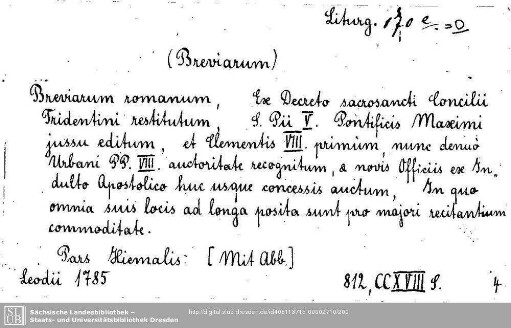 Liturg. 170 e =D
(Breviarum)
Breviarum romanum, Ex Decreto sacrosancti Concilii
Tridentini restitutum, S. Pii V. Pontificis Maximi
jussu editum, et Clementis VIII. primum, nunc denuo
Urbani PP. VIII. auctoritate recognitum, & novis Officiis ex In-
dulto Apostolico huc usque concessis auctum, In quo
omnia suis locis ad longa posita sunt pro majori recitantium
commoditate.
Pars Hiemalis: [Mit Abb.]
Leodii 1785 812, CCXVIII S. 4
Sächsische Landesbibliothek –
Staats- und Universitätsbibliothek Dresden